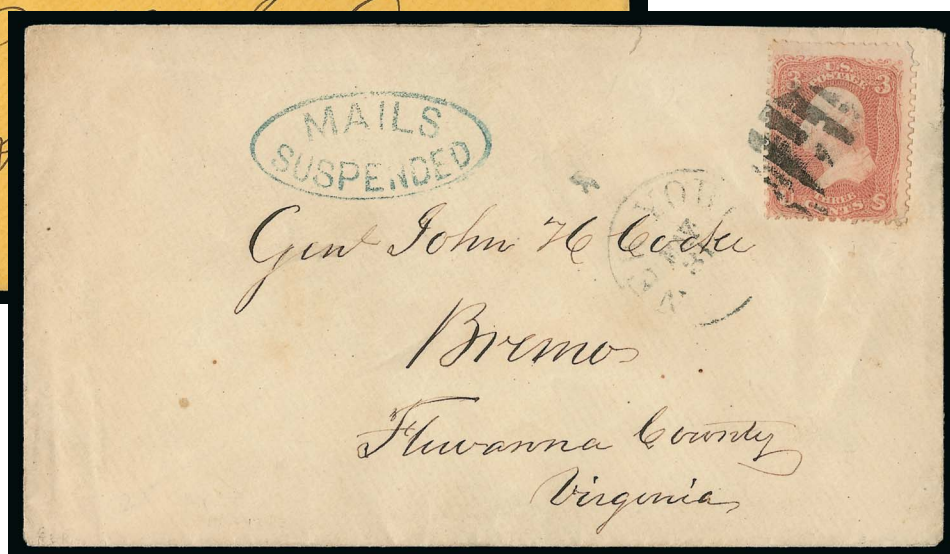 MAILS
SUSPENDED
U.S.
POSTAGE
3 3
THREE
CENTS
NEW YORK
Genl John H Cocke
Bremo
Fluvanna County
Virginia